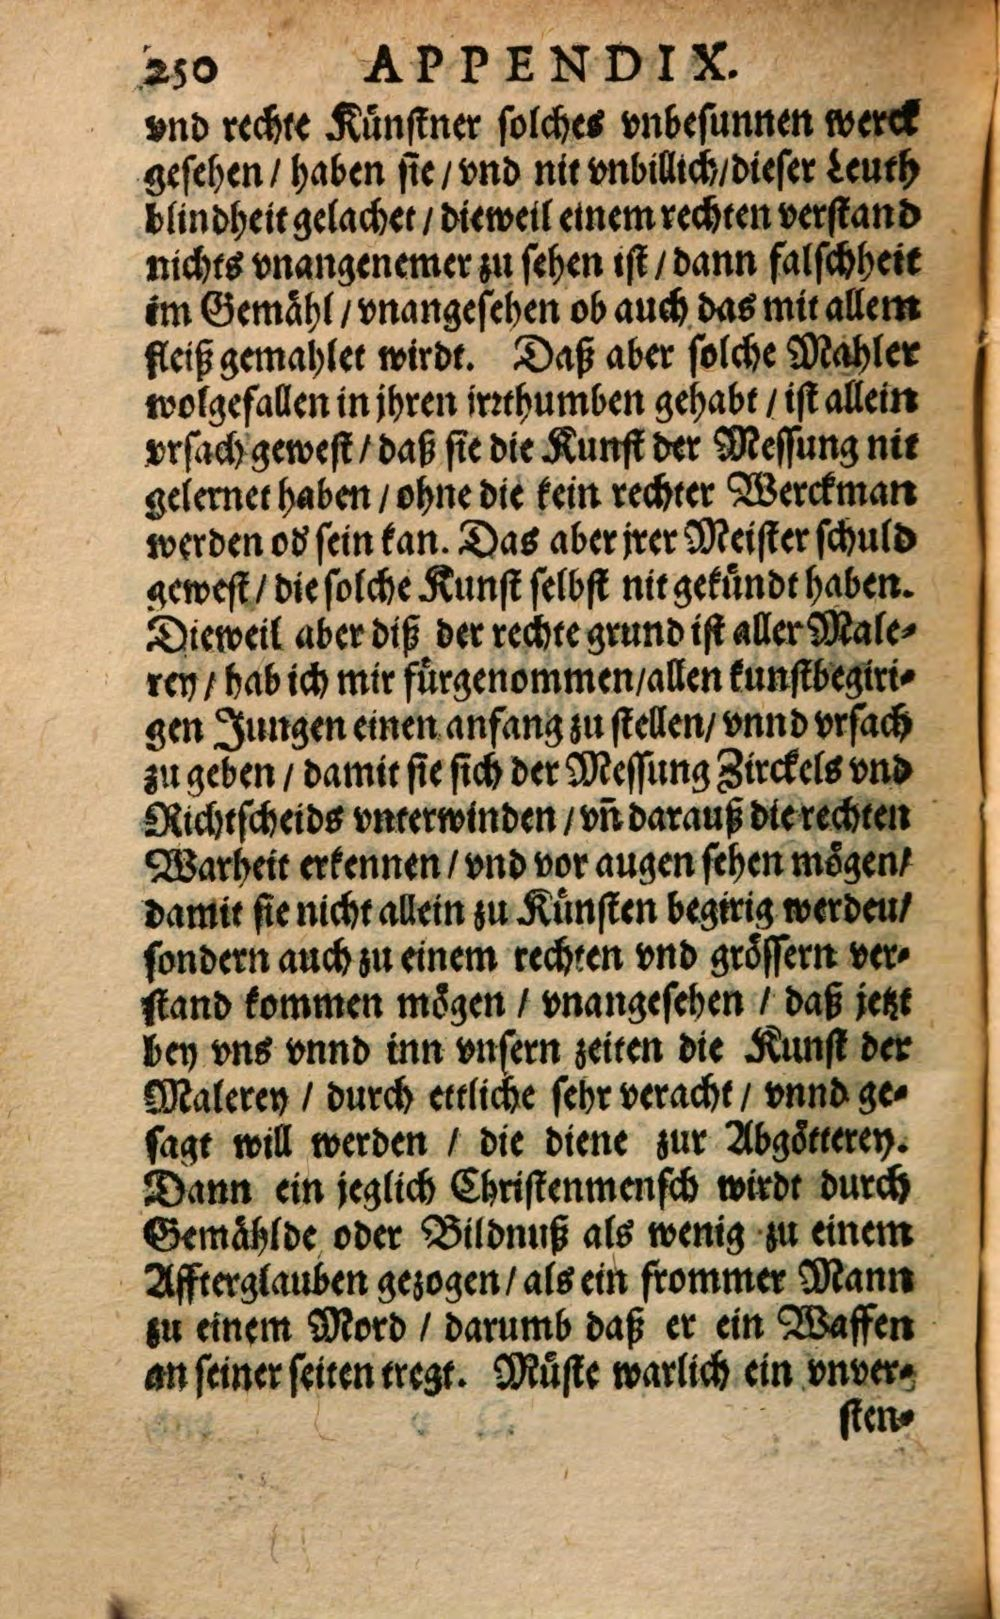 250 APPENDIX.
vnd rechte Künstner solches vnbesunnen werck
gesehen / haben sie / vnd nit vnbillich / dieser Leuth
blindheit gelachet / dieweil einem rechten verstand
nichts vnangenemer zu sehen ist / dann falschheit
im Gemähl / vnangesehen ob auch das mit allem
fleiß gemahlet wirdt. Daß aber solche Mahler
wolgefallen in jhren irrthumben gehabt / ist allein
vrsach gewest / daß sie die Kunst der Messung nit
gelernet haben / ohne die kein rechter Werckman
werden od' sein kan. Das aber jrer Meister schuld
gewest / die solche Kunst selbst nit gekündt haben.
Dieweil aber diß der rechte grund ist aller Male-
rey / hab ich mir fürgenommen / allen kunstbegiri-
gen Jungen einen anfang zu stellen / vnnd vrsach
zu geben / damit sie sich der Messung Zirckels vnd
Richtscheids vnterwinden / vn̄ darauß die rechten
Warheit erkennen / vnd vor augen sehen mögen /
damit sie nicht allein zu Künsten begirig werdeu /
sondern auch zu einem rechten vnd grössern ver-
stand kommen mögen / vnangesehen / daß jetzt
bey vns vnnd inn vnsern zeiten die Kunst der
Malerey / durch ettliche sehr veracht / vnnd ge-
sagt will werden / die diene zur Abgötterey.
Dann ein jeglich Christenmensch wirdt durch
Gemählde oder Bildnuß als wenig zu einem
Affterglauben gezogen / als ein frommer Mann
zu einem Mord / darumb daß er ein Waffen
an seiner seiten tregt. Müste warlich ein vnver-
sten-